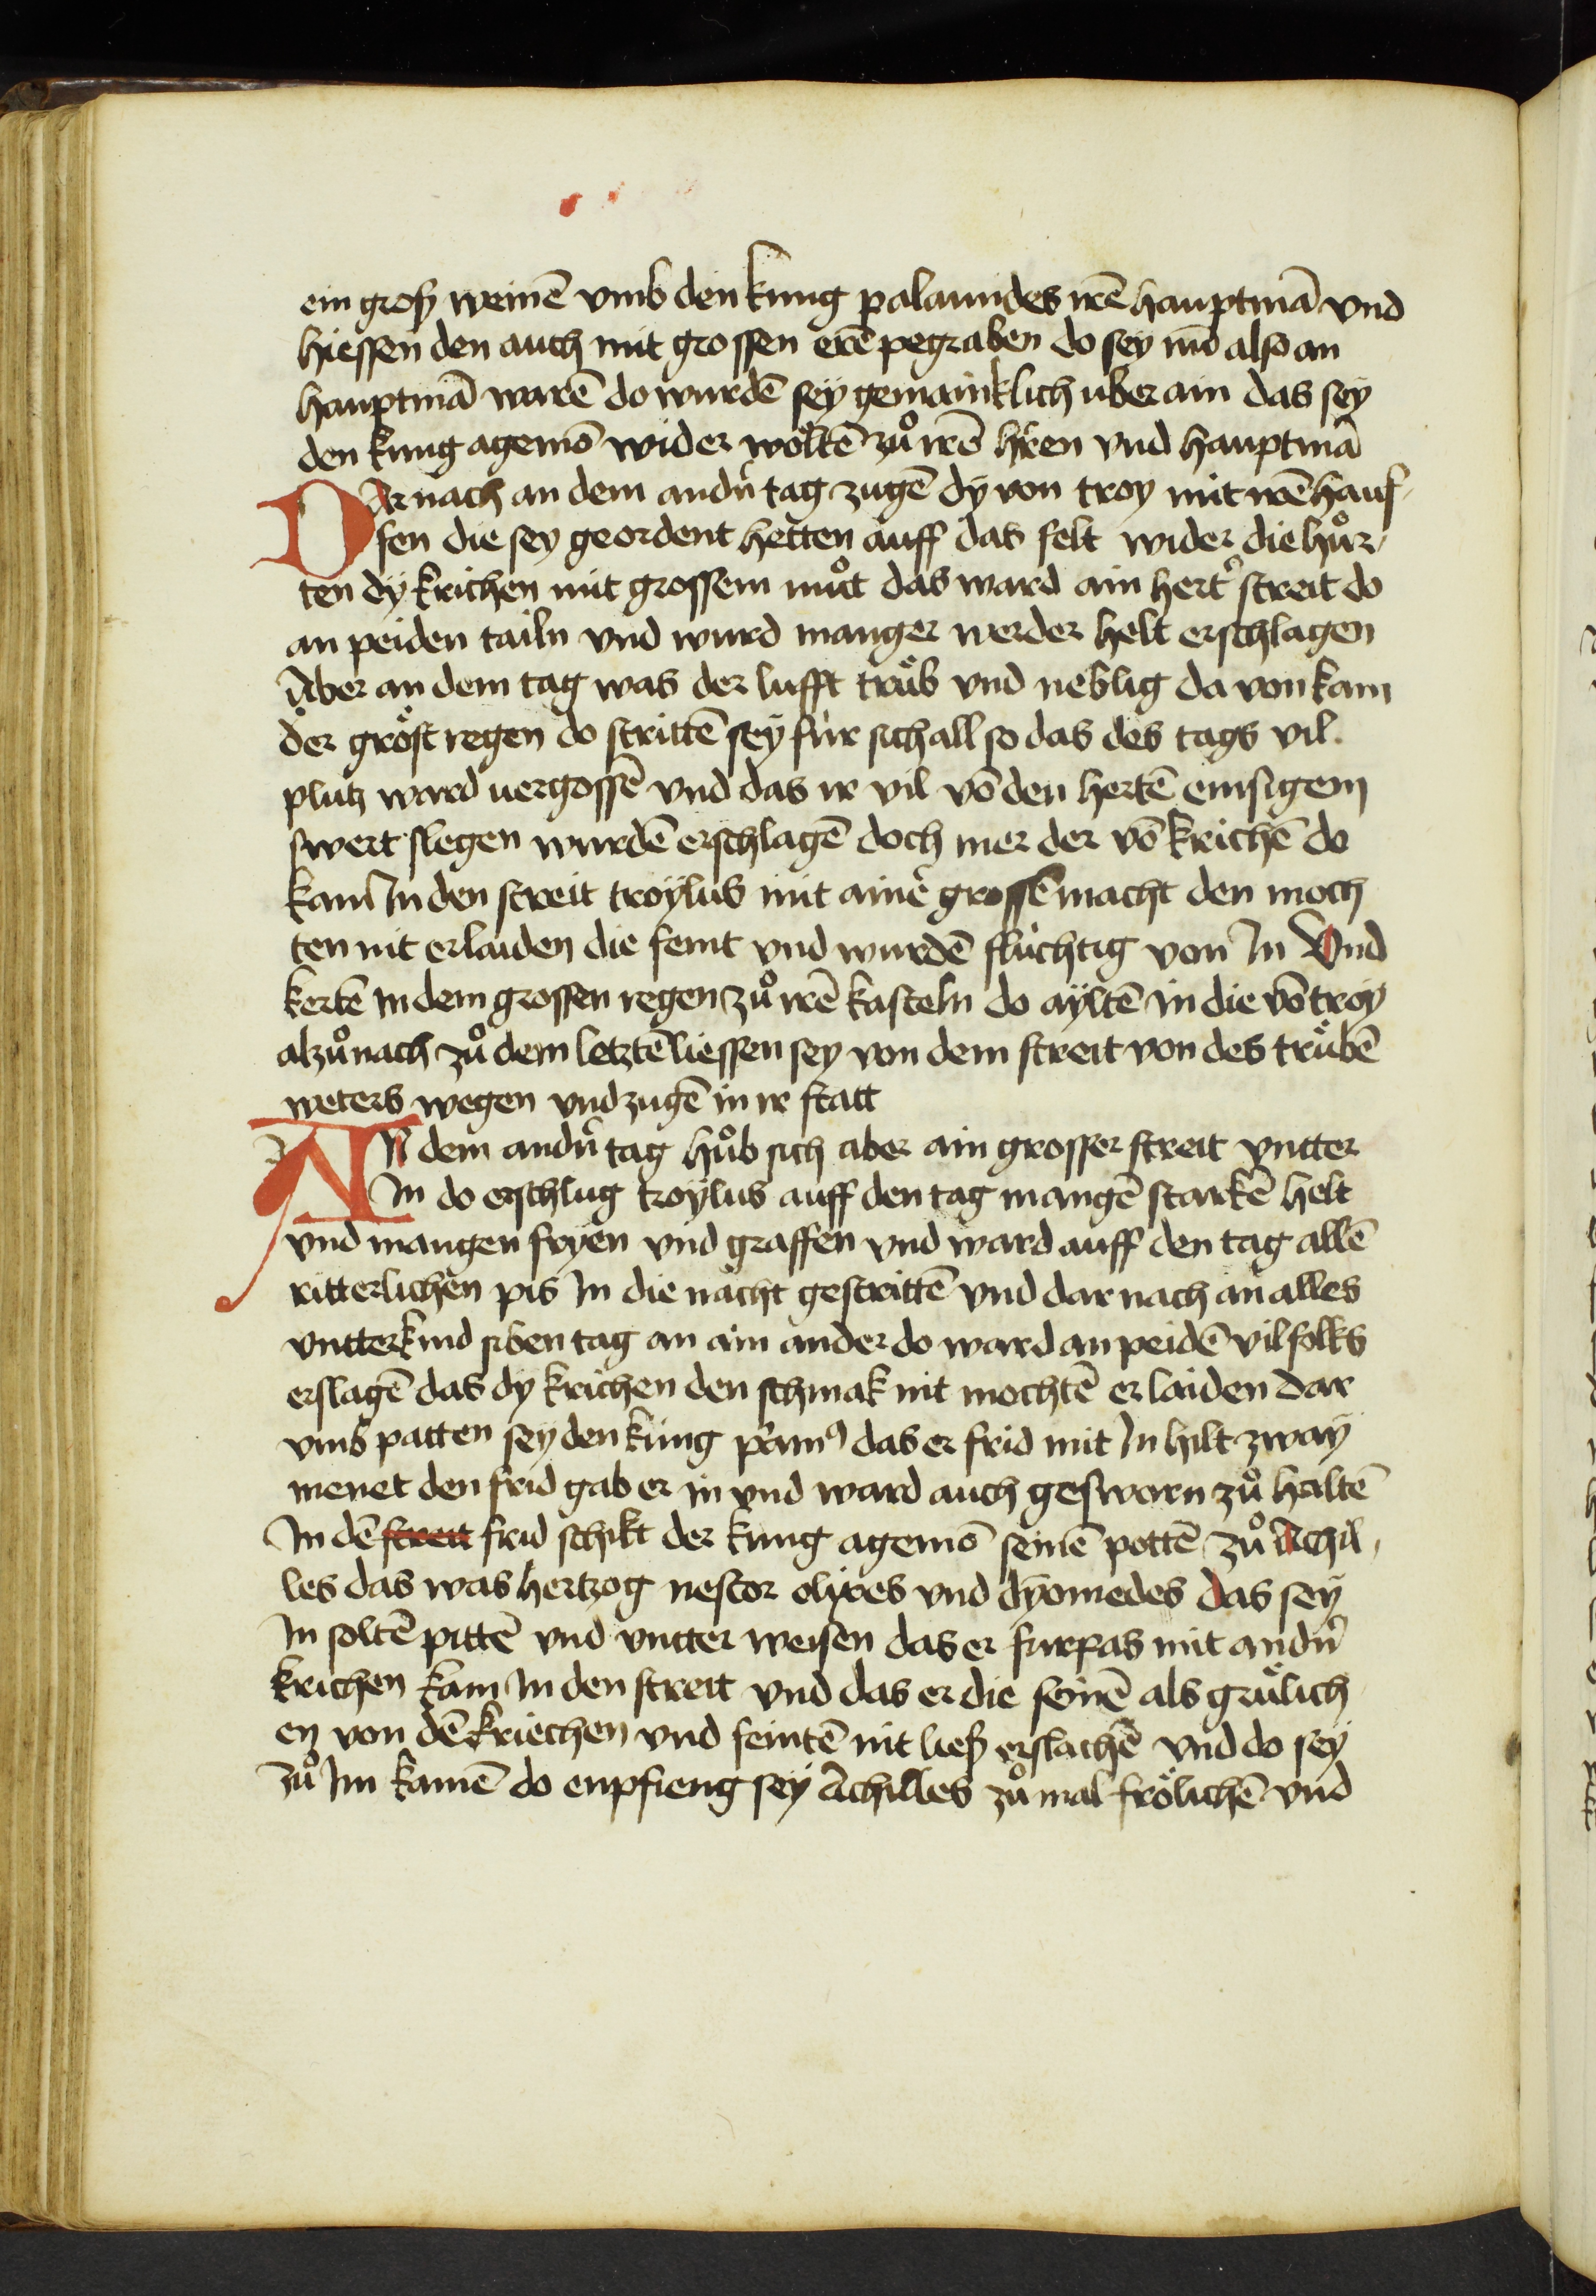 ein groß weinē vmb den kung palamides irē hauptmā vnd
hiessen den auch mit grossen erē pegraben do sey nū also an
hauptmā warē do wurdē sey gemainklich uber ain das sey
den kung agemō wider woltē zuͦ irē hr̄en vnd hauptmā
DAr nach an dem andn̄ tag zugē dy von troy mit irē hauf-
fen die sey geordent hetten auff das felt wider die huͦr-
ten dy krichen mit grossem muͦt das ward ain hert̄ streit do
an peiden tailn vnd wurd manger werder helt erschlagen
Aber an dem tag was der lufft truͤb vnd neblig da von kam
der gröst regen do strittē sey für sich all so das des tags vil
plutz ward uergossē vnd das ir vil vō den hertē emsigem
swert slegen wurdē erschlagē doch mer der vō krichē do
kam In den streit troylus mit ainē grossē macht den moch
ten nit erlaiden die feint vnd wurdē flüchtig von In Vnd
kertē in dem grossen regen zuͦ irē kasteln do ayltē in die vō troy
alzuͦ nach zuͦ dem letztē liessen sey von dem streit von des truͤbē
weters wegen vnd zugē in ir statt
AN dem andn̄ tag huͦb sich aber ain grosser streit vntter
In do erschlug troylus auff den tag mangē starkē helt
vnd mangen fryen vnd graffen vnd ward auff den tag allē
ritterlichen pis In die nacht gestrittē vnd dar nach an alles
vntterkind siben tag an ain ander do ward an peidē vil folks
erslagē das dy krichen den schmak nit mochtē erlaiden dar
vmb patten sey den kung priamꝰ das er frid mit In hilt zway
menet den frid gab er in vnd ward auch gesworn zuͦ haltē
In dē streit frid schikt der kung agemō seinē pottē zuͦ Achil-
les das was hertzog nestor olixes vnd dyomedes das sey
In soltē pittē vnd vntter weisen das er furpas mit andn̄
krichen kam In den streit vnd das er die seinē als gruͤlich
en von dē kriechen vnd feintē nit ließ erslachē vnd do sey
zuͦ Im kamē do enpfieng sey Achilles zuͦ mal frölichē vnd